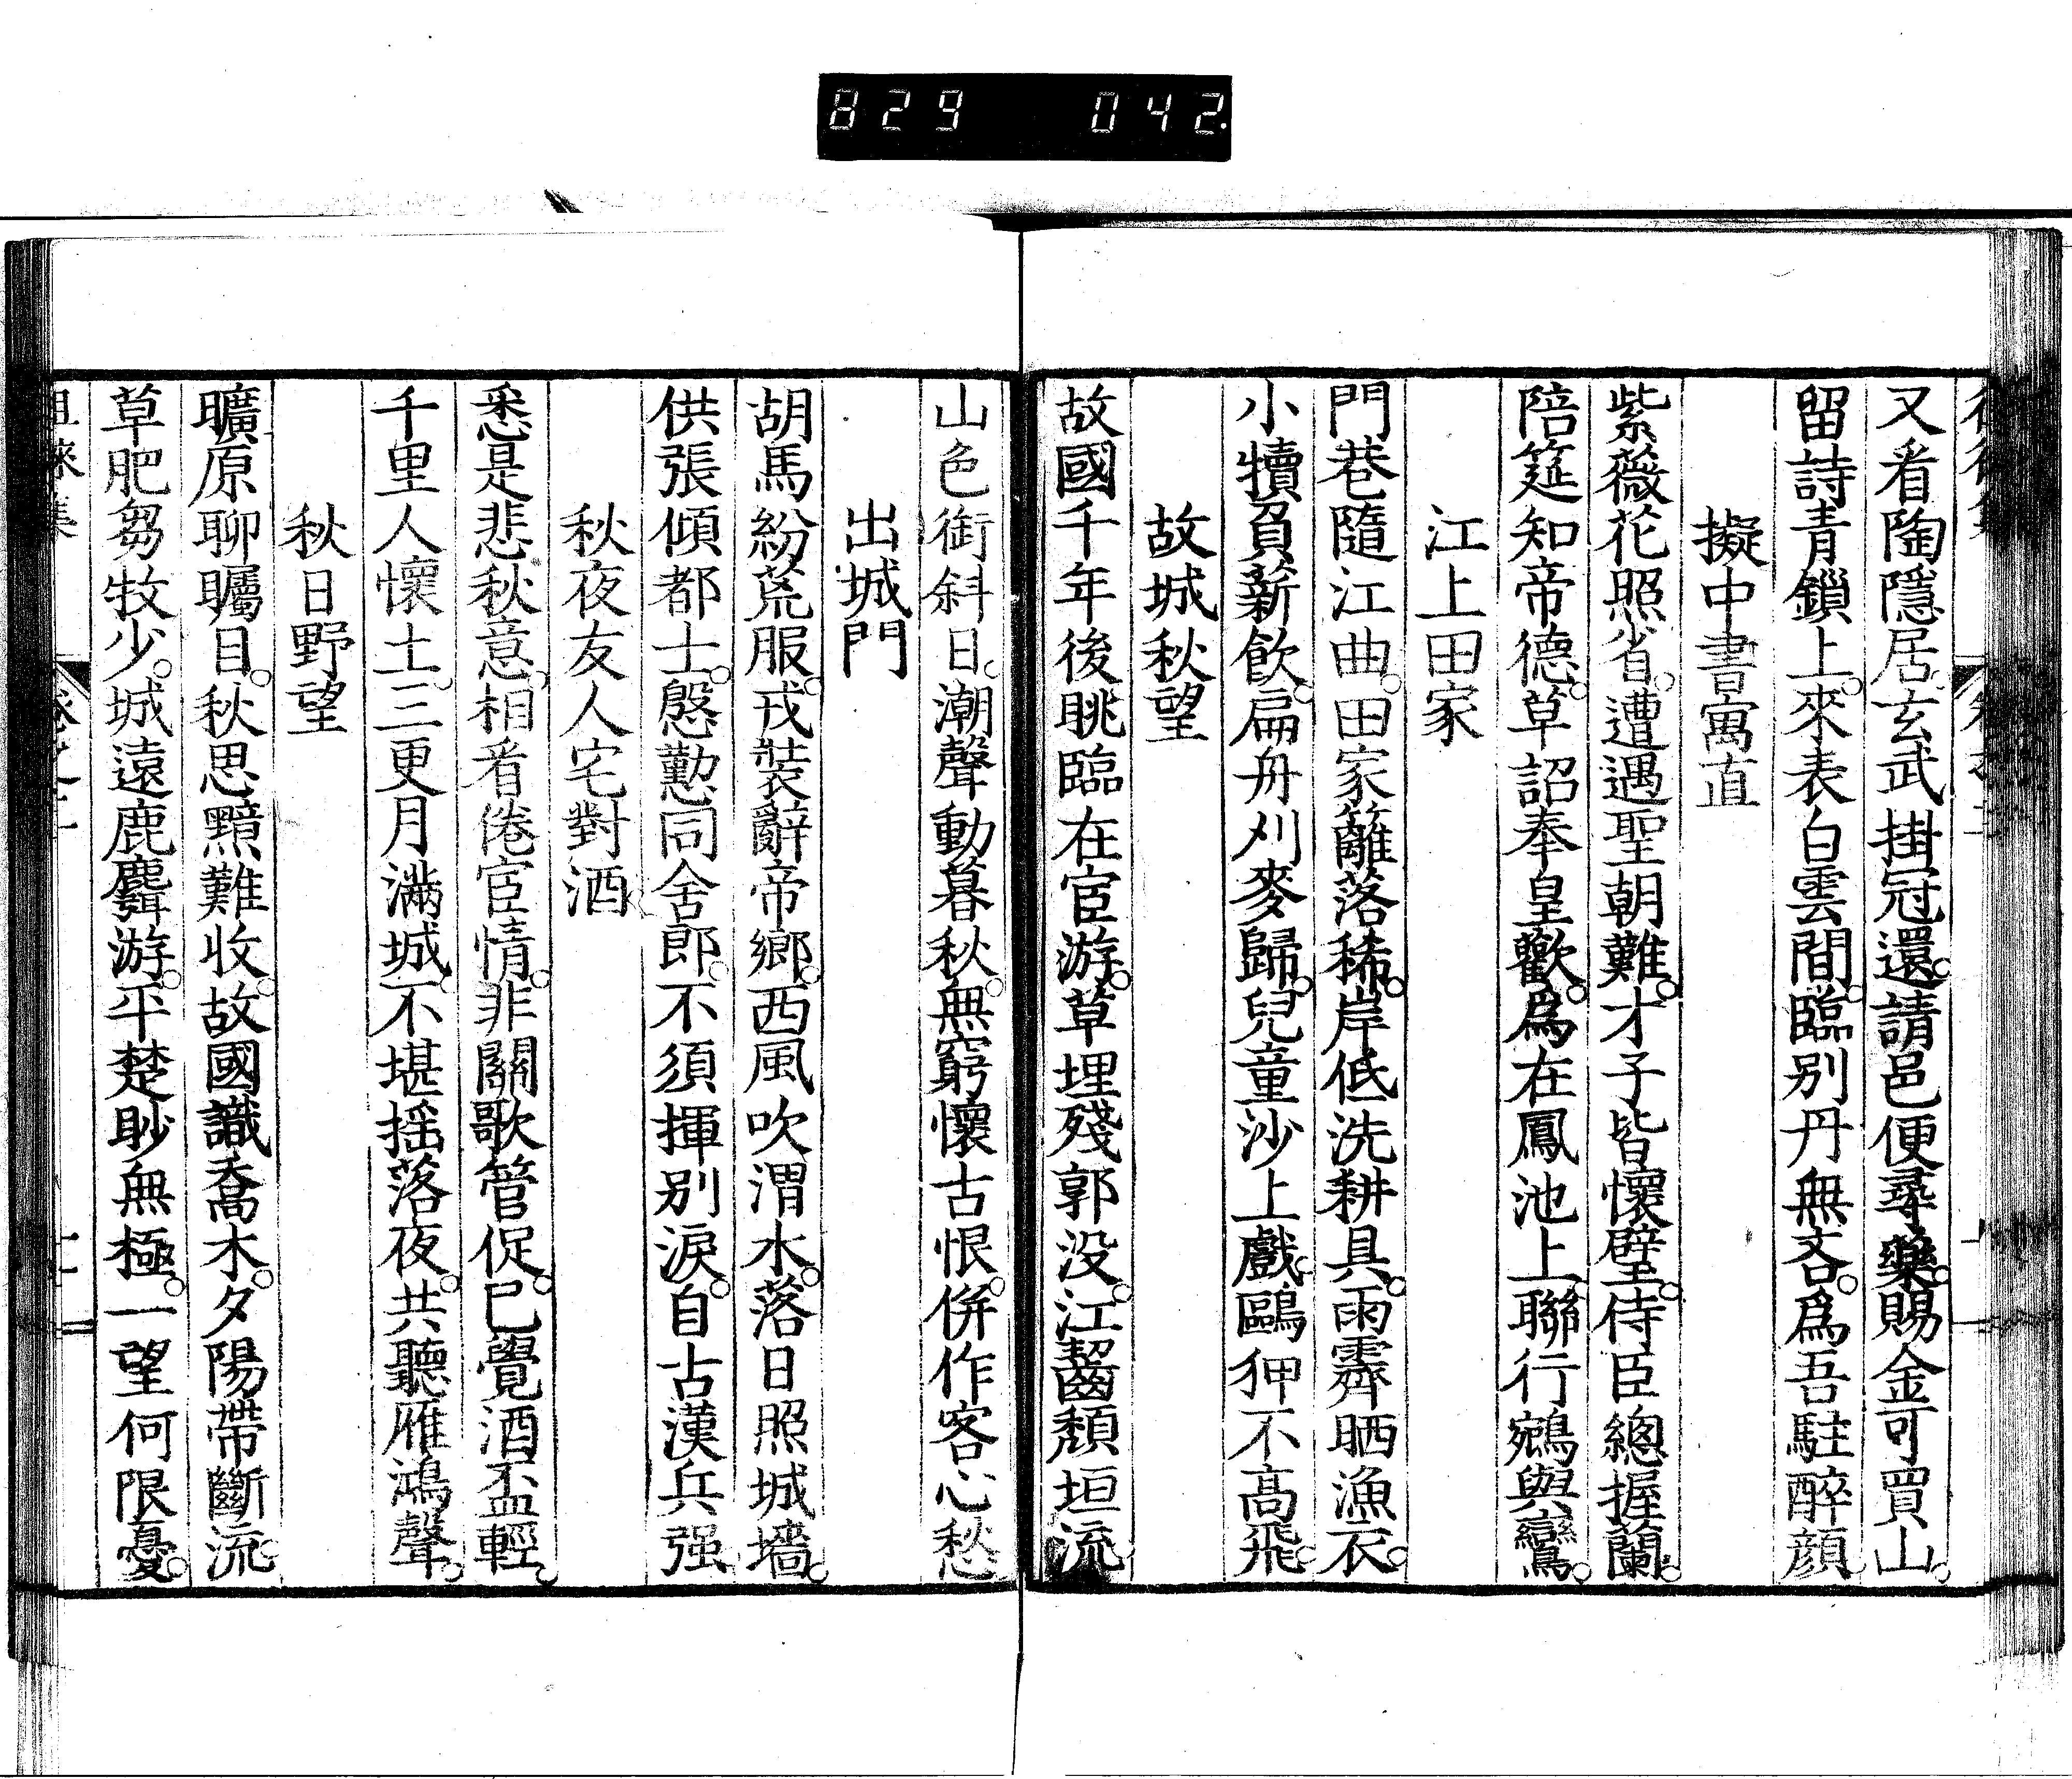 829 042.
又看陶隱居玄武掛冠還請邑便尋藥賜金可買山
留詩青鎖上來表白雲間臨別丹無吝爲吾駐醉顔
擬中書寓直
紫薇花照省遭遇聖朝難才子皆懷壁侍臣總握蘭
陪筵知帝德草詔奉皇歡爲在鳳池上聯行鵷與鸞
江上田家
門巷隨江曲田家籬落稀岸低洗耕具雨霽晒漁衣
小犢負薪飲扁舟刈麥歸兒童沙上戲鷗狎不高飛
故城秋望
故國千年後眺臨在宦游草埋殘郭没江齧頽垣流
山色銜斜日潮聲動暮秋無窮懷古恨併作客心愁
出城門
胡馬紛荒服戎裝辭帝鄉西風吹渭水落日照城墻
供張傾都士慇懃同舍郎不須揮别淚自古漢兵强
秋夜友人宅對酒
悉是悲秋意相看倦宦情非關歌管促已覺酒盃輕
千里人懷土三更月滿城不堪揺落夜共聽雁鴻聲
秋日野望
曠原聊矚目秋思黯難收故國識喬木夕陽帶斷流
草肥芻牧少城遠鹿麕游平楚眇無極一望何限憂